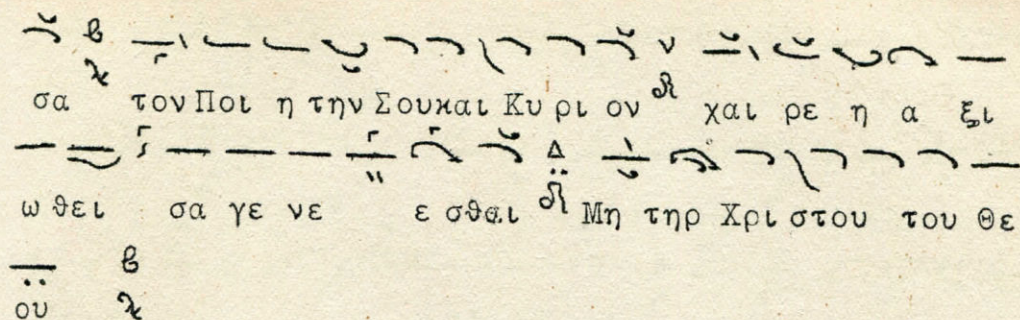 σα τον Ποι η την Σου και Κυ ρι ον χαι ρε η α ξι
ω θει σα γε νε ε σθαι Μη τηρ Χρι στου του Θε
ου